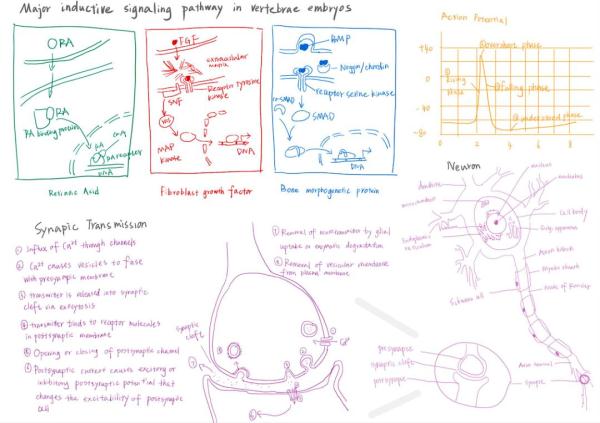 Major inductive signaling pathway in vertebrae embryos
RA
RA
RA binding protein
RA
RA receptor
DNA
Retinoic Acid
FGF
extracellular
Receptor tyrosine
kinase
SNT
MAP
kinase
DNA
Fibroblast growth factor
BMP
Noggin/chordin
receptor serine kinase
co-SMAD
SMAD
DNA
Bone morphogenetic protein
Action Potential
+40
0
-40
-80
0
2
4
6
8
① Rising
phase
② overshoot phase
③ falling phase
④ undershoot phase
Neuron
nucleus
nucleolus
dendrite
mitochondrion
Cell body
Golgi apparatus
Endoplasmic
reticulum
Axon hillock
Myelin sheath
Node of Ranvier
Schwann cell
Axon terminal
synapse
Synapic Transmission
① Influx of Ca²⁺ through channels
② Ca²⁺ causes vesicles to fuse
with presynapic membrane
③ transmitter is released into synaptic
cleft via exocytosis
④ transmitter binds to receptor molecules
in postsynaptic membrane
⑤ Opening or closing of postsynaptic channel
⑥ Postsynaptic current causes excitory or
inhibitory postsynaptic potential that
changes the excitability of postsynaptic
cell
⑦ Removal of neurotransmitter by glial
uptake or enzymatic degradation
⑧ Removal of vesicular membrane
from plasma membrane
synaptic
cleft
Ca²⁺
presynapse
synaptic cleft
postsynapse